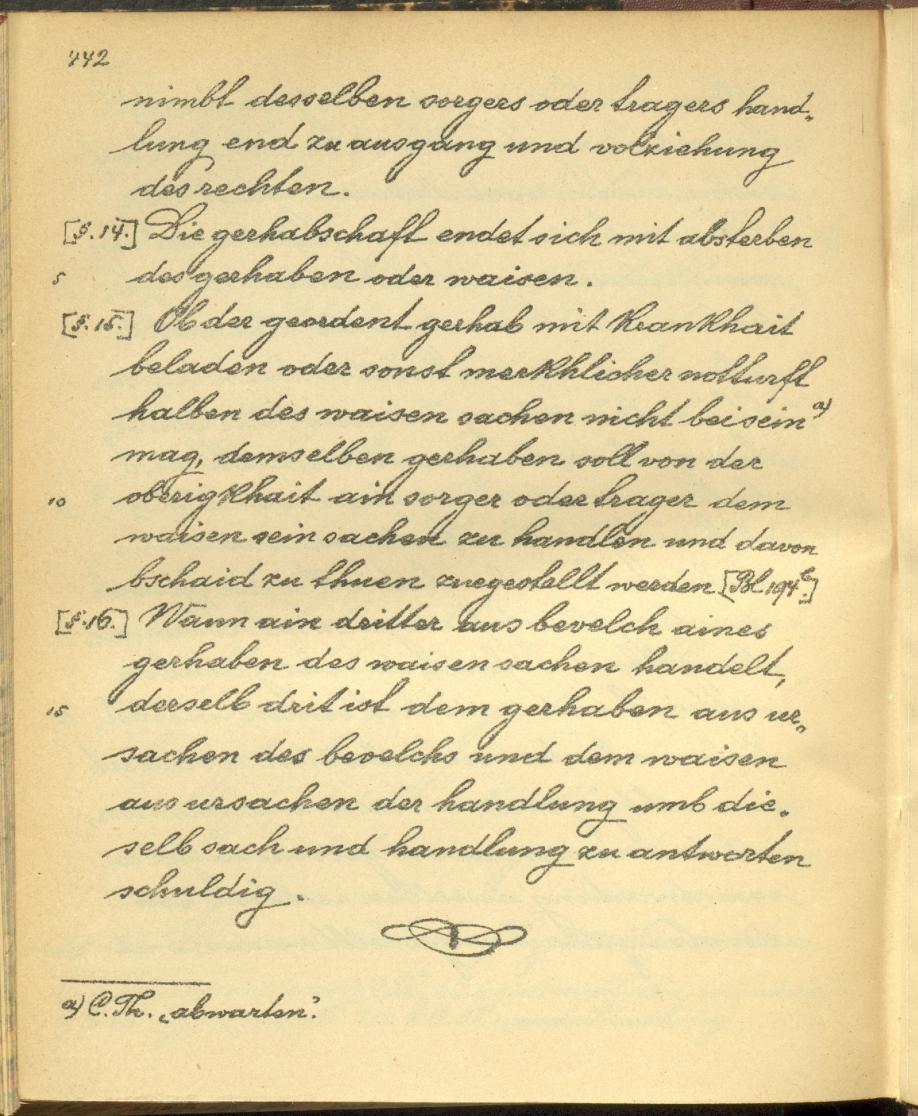 442
nimbt desselben sorgers oder tragers hand„
lung end zu ausgang und volziehung
des rechten.
[§. 14.] Die gerhabschaft endet sich mit absterben
5 des gerhaben oder waisen.
[§. 15.] Ob der geordent gerhab mit krankhait
beladen oder sonst merkhlicher notturft
halben des waisen sachen nicht bei sein a)
mag, demselben gerhaben soll von der
10 oberigkhait ain sorger oder trager dem
waisen sein sachen zu handlen und davon
bschaid zu thuen zuegestellt werden [Bl 194b.]
[§. 16.] Wann ain dritter aus bevelch aines
gerhaben des waisen sachen handelt,
15 derselb drit ist dem gerhaben aus ur„
sachen des bevelchs und dem waisen
aus ursachen der handlung umb die„
selb sach und handlung zu antworten
schuldig.
a) C. Th. „abwarten".